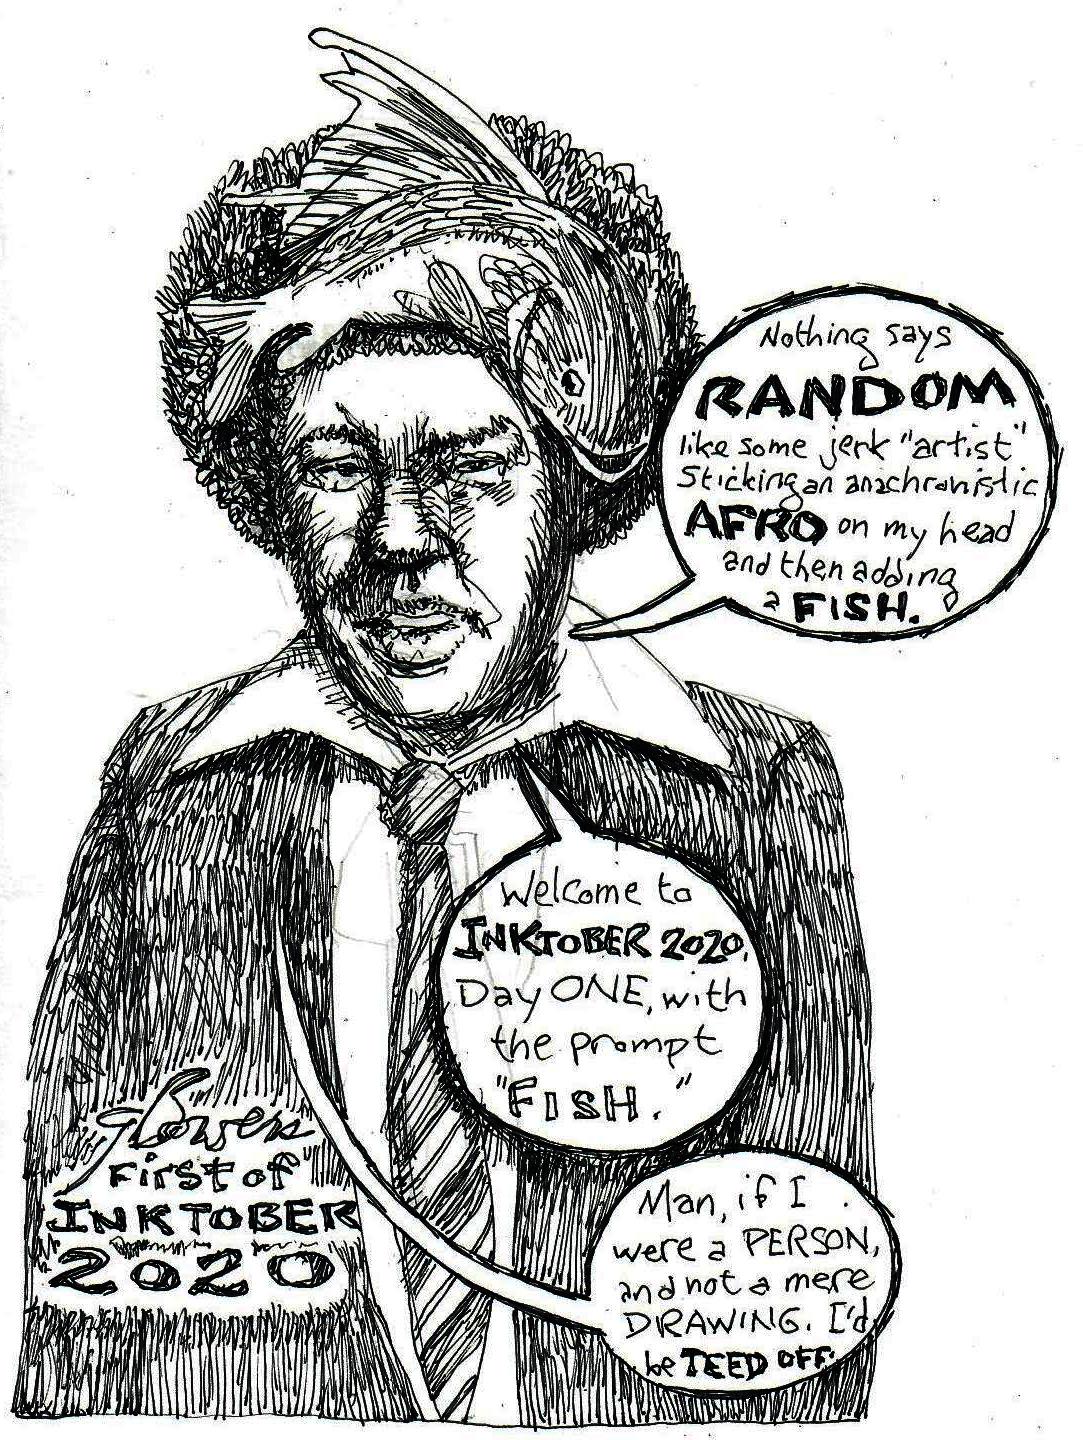 Nothing says
RANDOM
like some jerk "artist"
sticking an anachronistic
AFRO on my head
and then adding
a FISH.
Welcome to
INKTOBER 2020,
Day ONE, with
the prompt
"FISH."
Man, if I
were a PERSON,
and not a mere
DRAWING. I'd
be TEED OFF.
First of
INKTOBER
2020